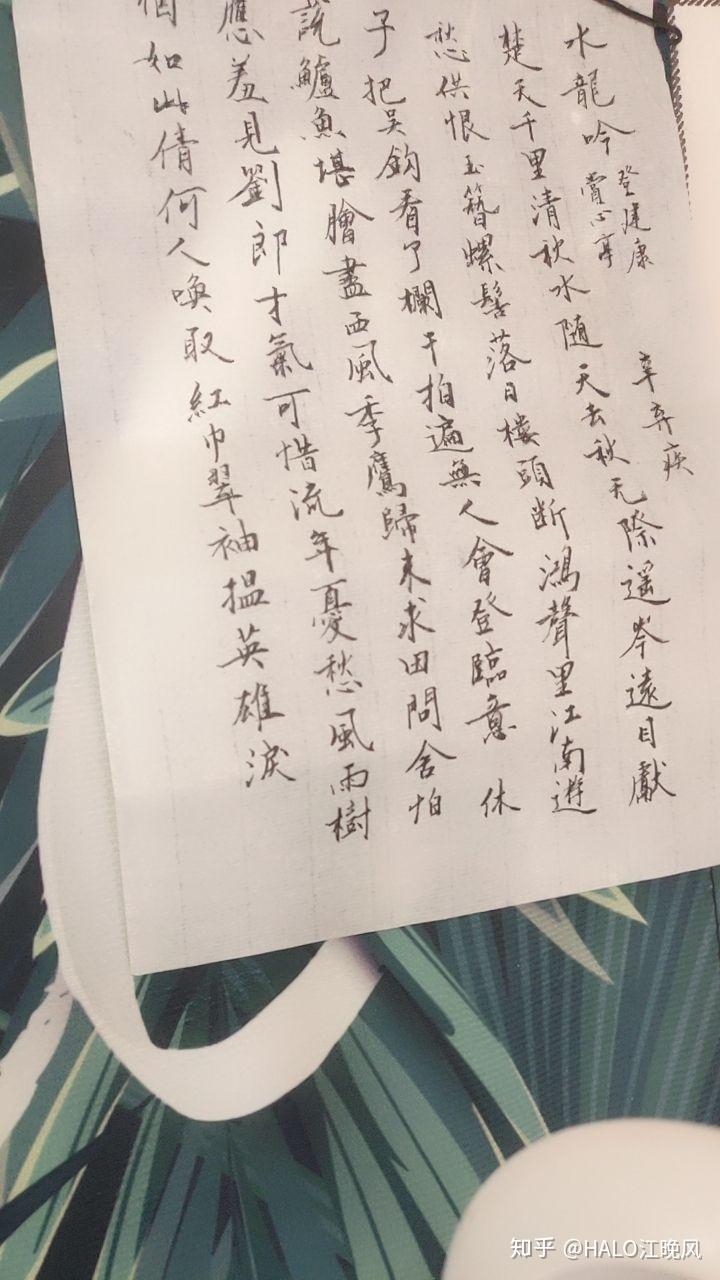 水龍吟
登建康
賞心亭
辛弃疾
楚天千里清秋水随天去秋无際遥岑遠目獻
愁供恨玉簪螺髻落日樓頭断鴻聲里江南遊
子把吴鈎看了欄干拍遍無人會登臨意 休
說鱸魚堪膾盡西風季鷹歸未求田問舍怕
應羞見劉郎才氣可惜流年憂愁風雨樹
如此倩何人喚取紅巾翠袖揾英雄淚
知乎 @HALO江晚风